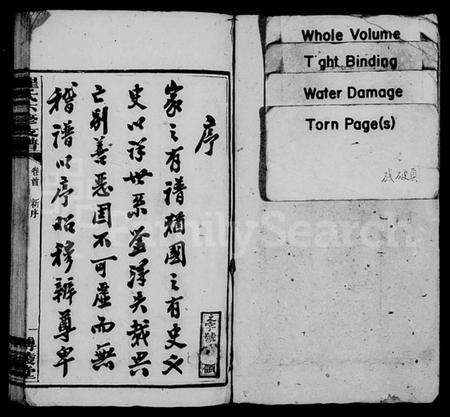 序
家之有譜猶國之有史也
史以詳世系登得失裁興
亡別善惡固不可虛而無
稽譜以序昭穆辨尊卑
卷首
新序
一
Whole Volume
Tight Binding
Water Damage
Torn Page(s)
残破頁
FamilySearch